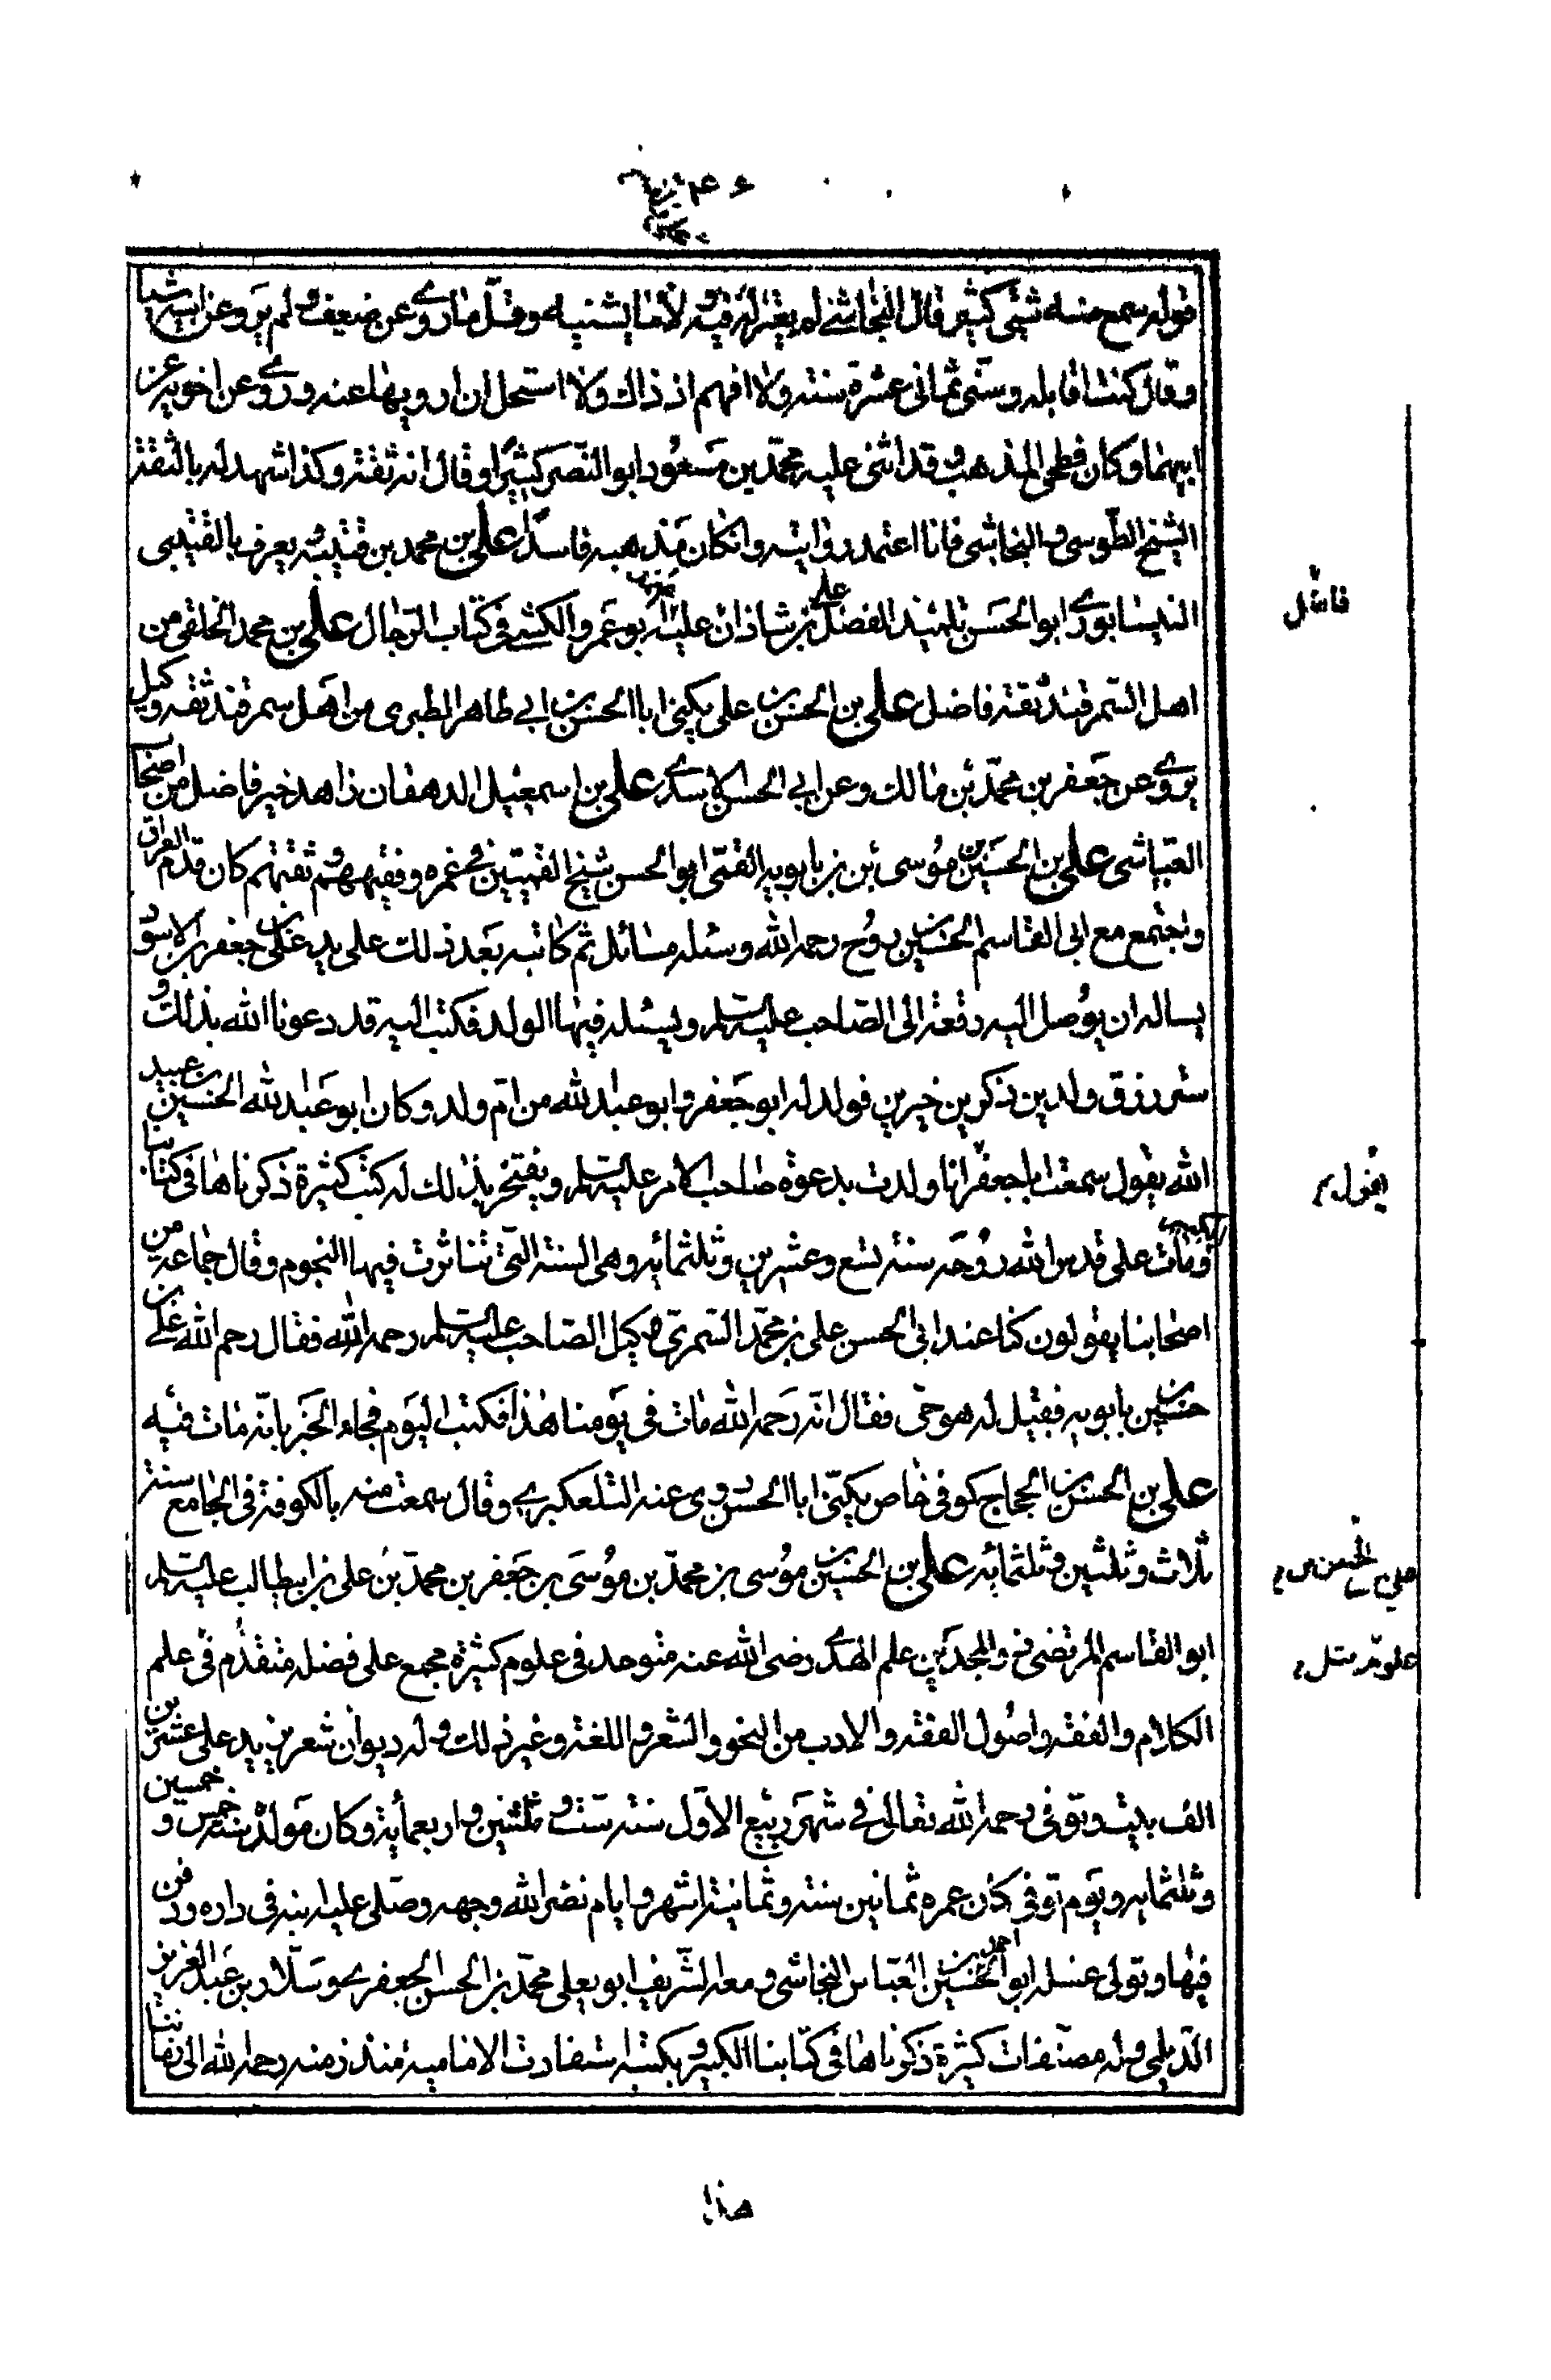 قوله سمع منه شيئ كثير قال النجاشي لم يعثر له فيه زلة لأما يشنيه وقل ما روى عن ضعيف ولم يرو عن ابيه شيئا
وقال كنت اقابله وسنى ثمانى عشرة سنة ولا افهم اذ ذاك ولا استحل ان ارويها عنه وروى عن اخويه عن
ابيهما وكان فطحى المذهب وقد اثنى عليه محمد بن مسعود ابو النصر كثيرا وقال انه ثقة وكذا شهد له بالثقة
الشيخ الطوسى والنجاشى فانا اعتمد روايته وان كان مذهبه فاسدا على بن محمد بن قتيبة يعرف بالقتيبى
النيسابورى ابو الحسن تلميذ الفضل بن شاذان عليه ابو عمرو الكشى فى كتاب الرجال على بن محمد الخلقى من
اهل السمرقند ثقة فاضل على بن الحسين بن على يكنى ابا الحسن بن ابى طاهر الطبرى من اهل سمرقند ثقة وكيل
يروى عن جعفر بن محمد بن مالك وعن ابى الحسين الاسدى على بن اسمعيل الدهقان زاهد خير فاضل من اصحاب
العياشى على بن الحسين بن موسى بن بابويه القمى ابو الحسن شيخ القميين فى عصره وفقيههم وثقتهم كان قدم العراق
واجتمع مع ابى القاسم الحسين بن روح رحمه الله وسئله مسائل ثم كاتبه بعد ذلك على يد على بن جعفر بن الاسود
يساله ان يوصل اليه رقعة الى الصاحب عليه السلم ويسئله فيها الولد فكتب اليه قد دعونا الله بذلك و
سترزق ولدين ذكرين خيرين فولد له ابو جعفر وابو عبد الله من ام ولد وكان ابو عبد الله الحسين بن عبيد
الله يقول سمعت ابا جعفر انا ولدت بدعوة صاحب الامر عليه السلم ويفتخر بذلك له كتب كثيرة ذكرناها فى كتابنا
الكبير ومات على قدس الله روحه سنة تسع وعشرين وثلثمائه وهى السنة التى تناثرت فيها النجوم وقال جماعة من
اصحابنا يقولون كنا عند ابى الحسن على بن محمد السمرى وكيل الصاحب عليه السلم رحمه الله فقال رحم الله على بن
حسين بن بابويه فقيل له هو حى فقال انه رحمه الله مات فى يومنا هذا فكتب اليوم فجاء الخبر بانه مات فيه
على بن الحسن بن الحجاج كوفى خاص يكنى ابا الحسن روى عنه التلعكبرى وقال سمعت منه بالكوفة فى الجامع سنة
ثلاث وثلثين وثلثمائه على بن الحسين بن موسى بن محمد بن موسى بن جعفر بن محمد بن على بن ابيطالب عليه السلم
ابو القاسم المرتضى ذو المجدين علم الهدى رضى الله عنه متوحد فى علوم كثيرة مجمع على فضله متقدم فى علم
الكلام والفقه واصول الفقه والادب من النحو والشعر واللغة وغير ذلك وله ديوان شعر يزيد على عشرين
الف بيت وتوفى رحمه الله تعالى فى شهر ربيع الاول سنة ست وثلثين واربعمأية وكان مولده سنة خمس وخمسين
وثلثمايه ويوم توفى كان عمره ثمانين سنة وثمانية اشهر وايام نضر الله وجهه وصلى عليه ابنه فى داره ودفن
فيها وتولى غسله ابو الحسين احمد بن العباس النجاشى ومعه الشريف ابو يعلى محمد بن الحسن الجعفرى وسلار بن عبد العزيز
الديلمى وله مصنفات كثيرة ذكرناها فى كتابنا الكبير وبكتبه استفادت الامامية منذ زمنه رحمه الله الى زماننا
هذا
فاضل
يقول
على بن الحسن بن
علوم مثل